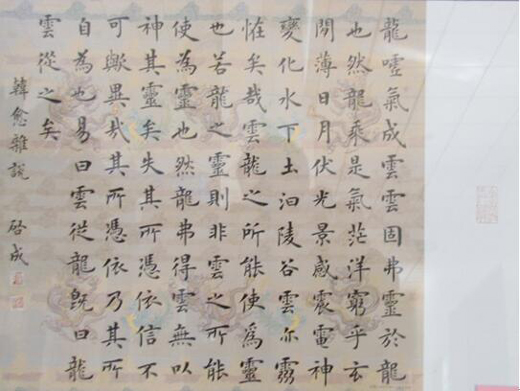 龍噓氣成雲雲固弗靈於龍
也然龍乘是氣茫洋窮乎玄
間薄日月伏光景感震電神
變化水下土汩陵谷雲亦靈
恠矣哉雲龍之所能使為靈
也若龍之靈則非雲之所能
使為靈也然龍弗得雲無以
神其靈矣失其所憑依信不
可歟異哉其所憑依乃其所
自為也易曰雲從龍既曰龍
雲從之矣
韓愈雜說 啓成